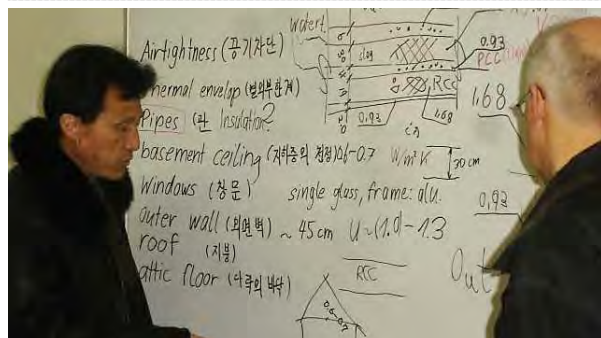 Watert.
Airtightness (공기차단)
Thermal envelop (열의부한계)
Pipes (관 Insulation?
basement ceiling (지하층의 천정) 0.6-0.7 W/m²K
30 cm
Windows (창문) single glass, frame: alu.
Outer wall (외면벽) ~ 45cm U ~ (1.0) - 1.3
roof (지붕)
attic floor (다락의 바닥)
RCC
0.6-0.7
clay
RCC
0.93
1.68
0.93
PCC
1.68
0.93
Out